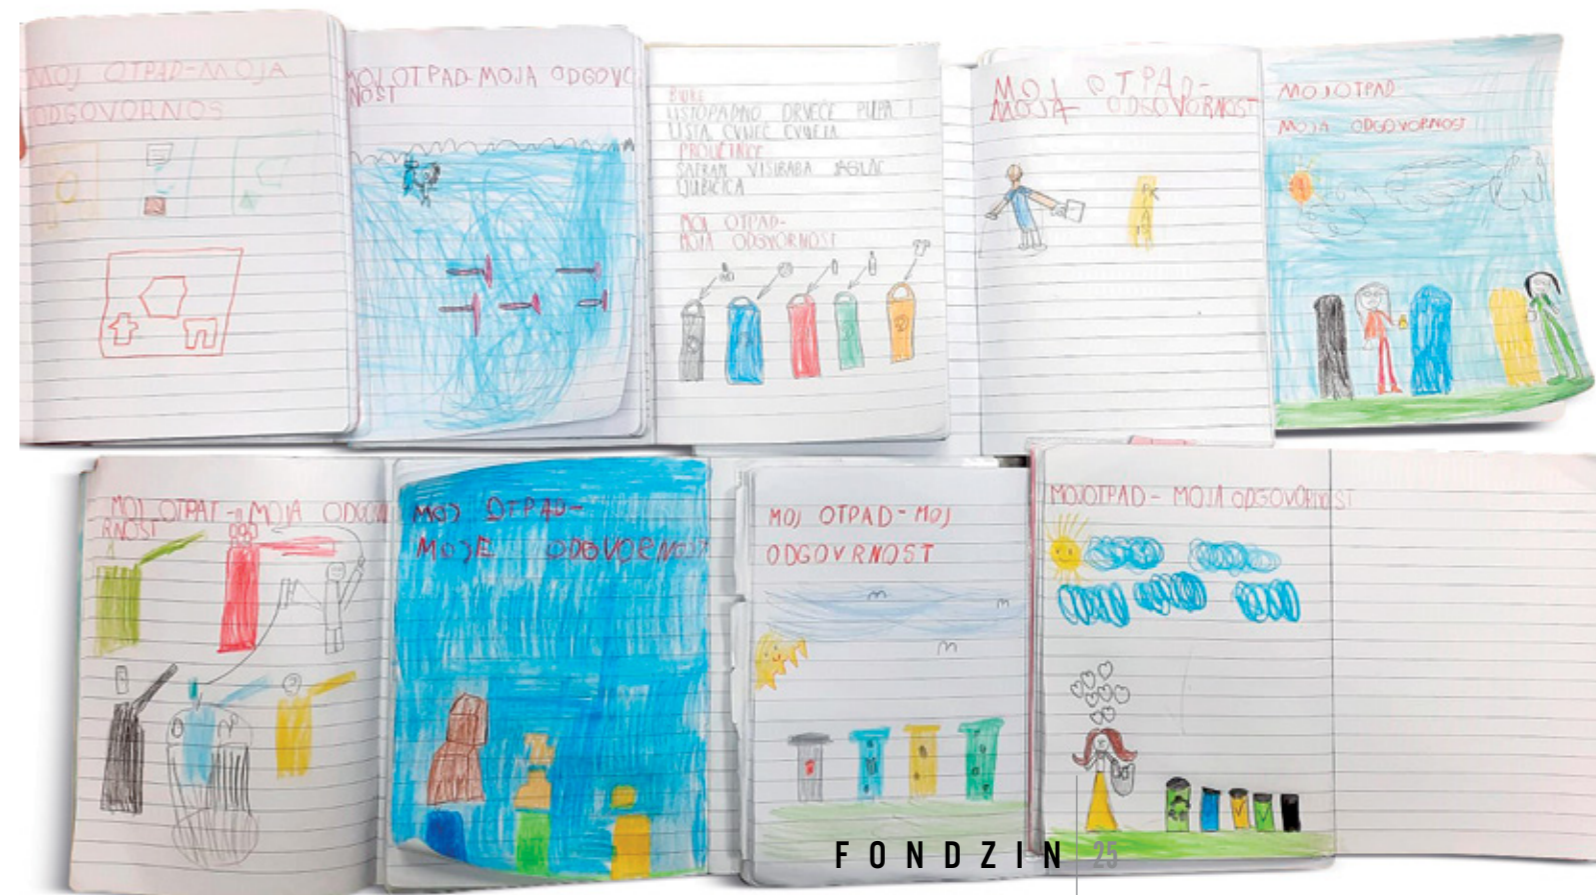 MOJ OTPAD-MOJA
ODGOVORNOS
MOJ OTPAD-MOJA ODGOVO
NOST
BILJKE
LISTOPADNO DRVEĆE PUPA I
LISTA CVIJEĆ CVIJETA
PROLJETNICE
ŠAFRAN VISIBABA JAGLAC
LJUBIČICA
MOJ OTPAD-
MOJA ODGVORNOST
MOJ OTPAD-
MOJA ODGOVORNOST
MOJ OTPAD-
MOJA ODGOVORNOST
MOJ OTPAT-MOJA ODGOVO
RNOST
MOJ OTPAD-
MOJE ODGVORNOST
MOJ OTPAD-MOJ
ODGOVRNOST
MOJ OTPAD - MOJA ODGOVORNOST
FONDZIN 25